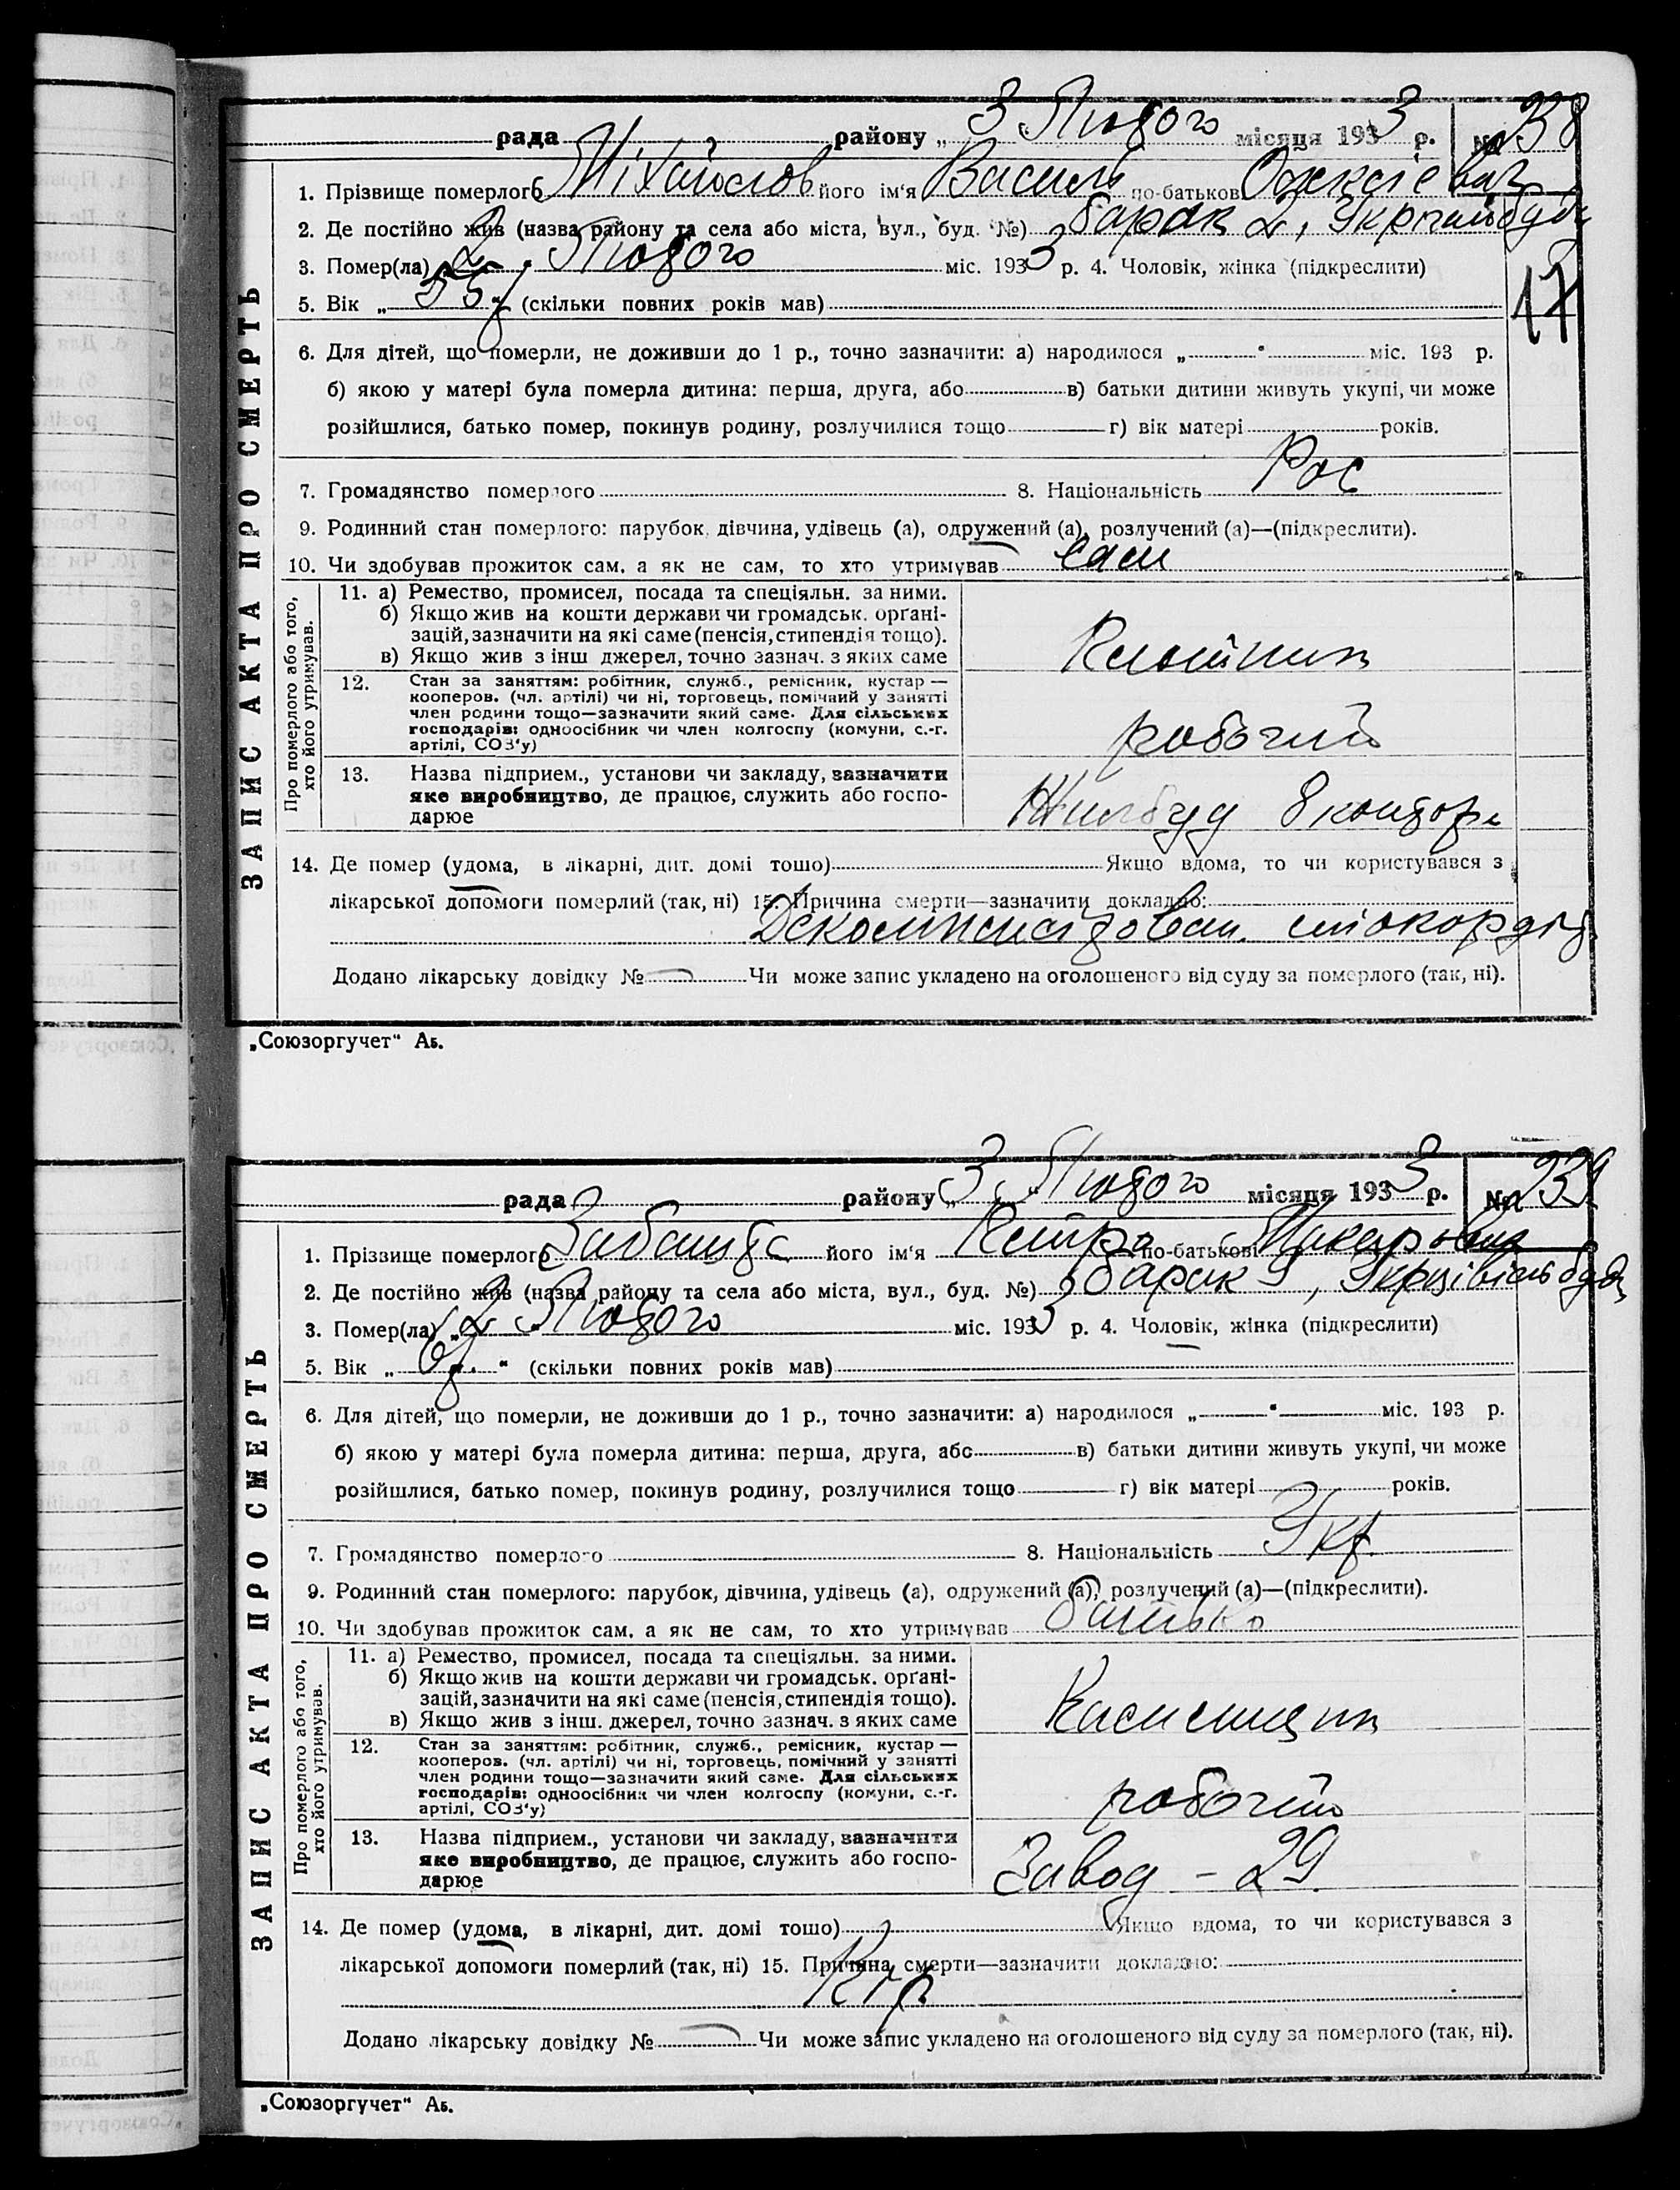 рада району „3 Лютого місяця 1933 р. № 238
1. Прізвище померлого Міхайлов його ім'я Василь по-батькові
2. Де постійно жив (назва району та села або міста, вул., буд. №) барак 2,
3. Помер(ла) „2" Лютого міс. 1933 р. 4. Чоловік, жінка (підкреслити)
17
5. Вік „55 (скільки повних років мав)
6. Для дітей, що померли, не доживши до 1 р., точно зазначити: а) народилося „ " міс. 193 р.
б) якою у матері була померла дитина: перша, друга, або в) батьки дитини живуть укупі, чи може
розійшлися, батько помер, покинув родину, розлучилися тощо г) вік матері років.
7. Громадянство померлого 8. Національність Рос
9. Родинний стан померлого: парубок, дівчина, удівець (а), одружений (а), розлучений (а)—(підкреслити).
10. Чи здобував прожиток сам, а як не сам, то хто утримував сам
ЗАПИС АКТА ПРО СМЕРТЬ
Про померлого або того, хто його утримував.
11. а) Ремество, промисел, посада та спеціяльн. за ними.
б) Якщо жив на кошти держави чи громадськ. органі-
зацій, зазначити на які саме (пенсія, стипендія тощо).
в) Якщо жив з інш джерел, точно зазнач. з яких саме
Плотник
12. Стан за заняттям: робітник, служб., ремісник, кустар —
кооперов. (чл. артілі) чи ні, торговець, помічний у занятті
член родини тощо—зазначити який саме. Для сільських
господарів: одноосібник чи член колгоспу (комуни, с.-г.
артілі, СОЗ'у)
робочий
13. Назва підприєм., установи чи закладу, зазначити
яке виробництво, де працює, служить або госпо-
дарює
Жилбуд 8 контора
14. Де помер (удома, в лікарні, дит. домі тошо) Якщо вдома, то чи користувався з
лікарської допомоги померлий (так, ні) 15. Причина смерти—зазначити докладно:
міокордіт
Додано лікарську довідку № Чи може запис укладено на оголошеного від суду за померлого (так, ні).
„Союзоргучет" Аб.
рада району „3" Лютого місяця 1933 р. № 239
1. Прізвище померлого Забашта його ім'я по-батькові
2. Де постійно жив (назва району та села або міста, вул., буд. №) барак 9,
3. Помер(ла) „2" Лютого міс. 1933 р. 4. Чоловік, жінка (підкреслити)
5. Вік „6 " (скільки повних років мав)
6. Для дітей, що померли, не доживши до 1 р., точно зазначити: а) народилося „ " міс. 193 р.
б) якою у матері була померла дитина: перша, друга, або в) батьки дитини живуть укупі, чи може
розійшлися, батько помер, покинув родину, розлучилися тощо г) вік матері років.
7. Громадянство померлого 8. Національність Укр
9. Родинний стан померлого: парубок, дівчина, удівець (а), одружений (а), розлучений (а)—(підкреслити).
10. Чи здобував прожиток сам, а як не сам, то хто утримував батько
ЗАПИС АКТА ПРО СМЕРТЬ
Про померлого або того, хто його утримував.
11. а) Ремество, промисел, посада та спеціяльн. за ними.
б) Якщо жив на кошти держави чи громадськ. органі-
зацій, зазначити на які саме (пенсія, стипендія тощо).
в) Якщо жив з інш. джерел, точно зазнач. з яких саме
12. Стан за заняттям: робітник, служб., ремісник, кустар —
кооперов. (чл. артілі) чи ні, торговець, помічний у занятті
член родини тощо—зазначити який саме. Для сільських
господарів: одноосібник чи член колгоспу (комуни, с.-г.
артілі, СОЗ'у)
робочий
13. Назва підприєм., установи чи закладу, зазначити
яке виробництво, де працює, служить або госпо-
дарює
Завод - 29
14. Де помер (удома, в лікарні, дит. домі тошо) Якщо вдома, то чи користувався з
лікарської допомоги померлий (так, ні) 15. Причина смерти—зазначити докладно:
Кір
Додано лікарську довідку № Чи може запис укладено на оголошеного від суду за померлого (так, ні).
„Союзоргучет" Аб.